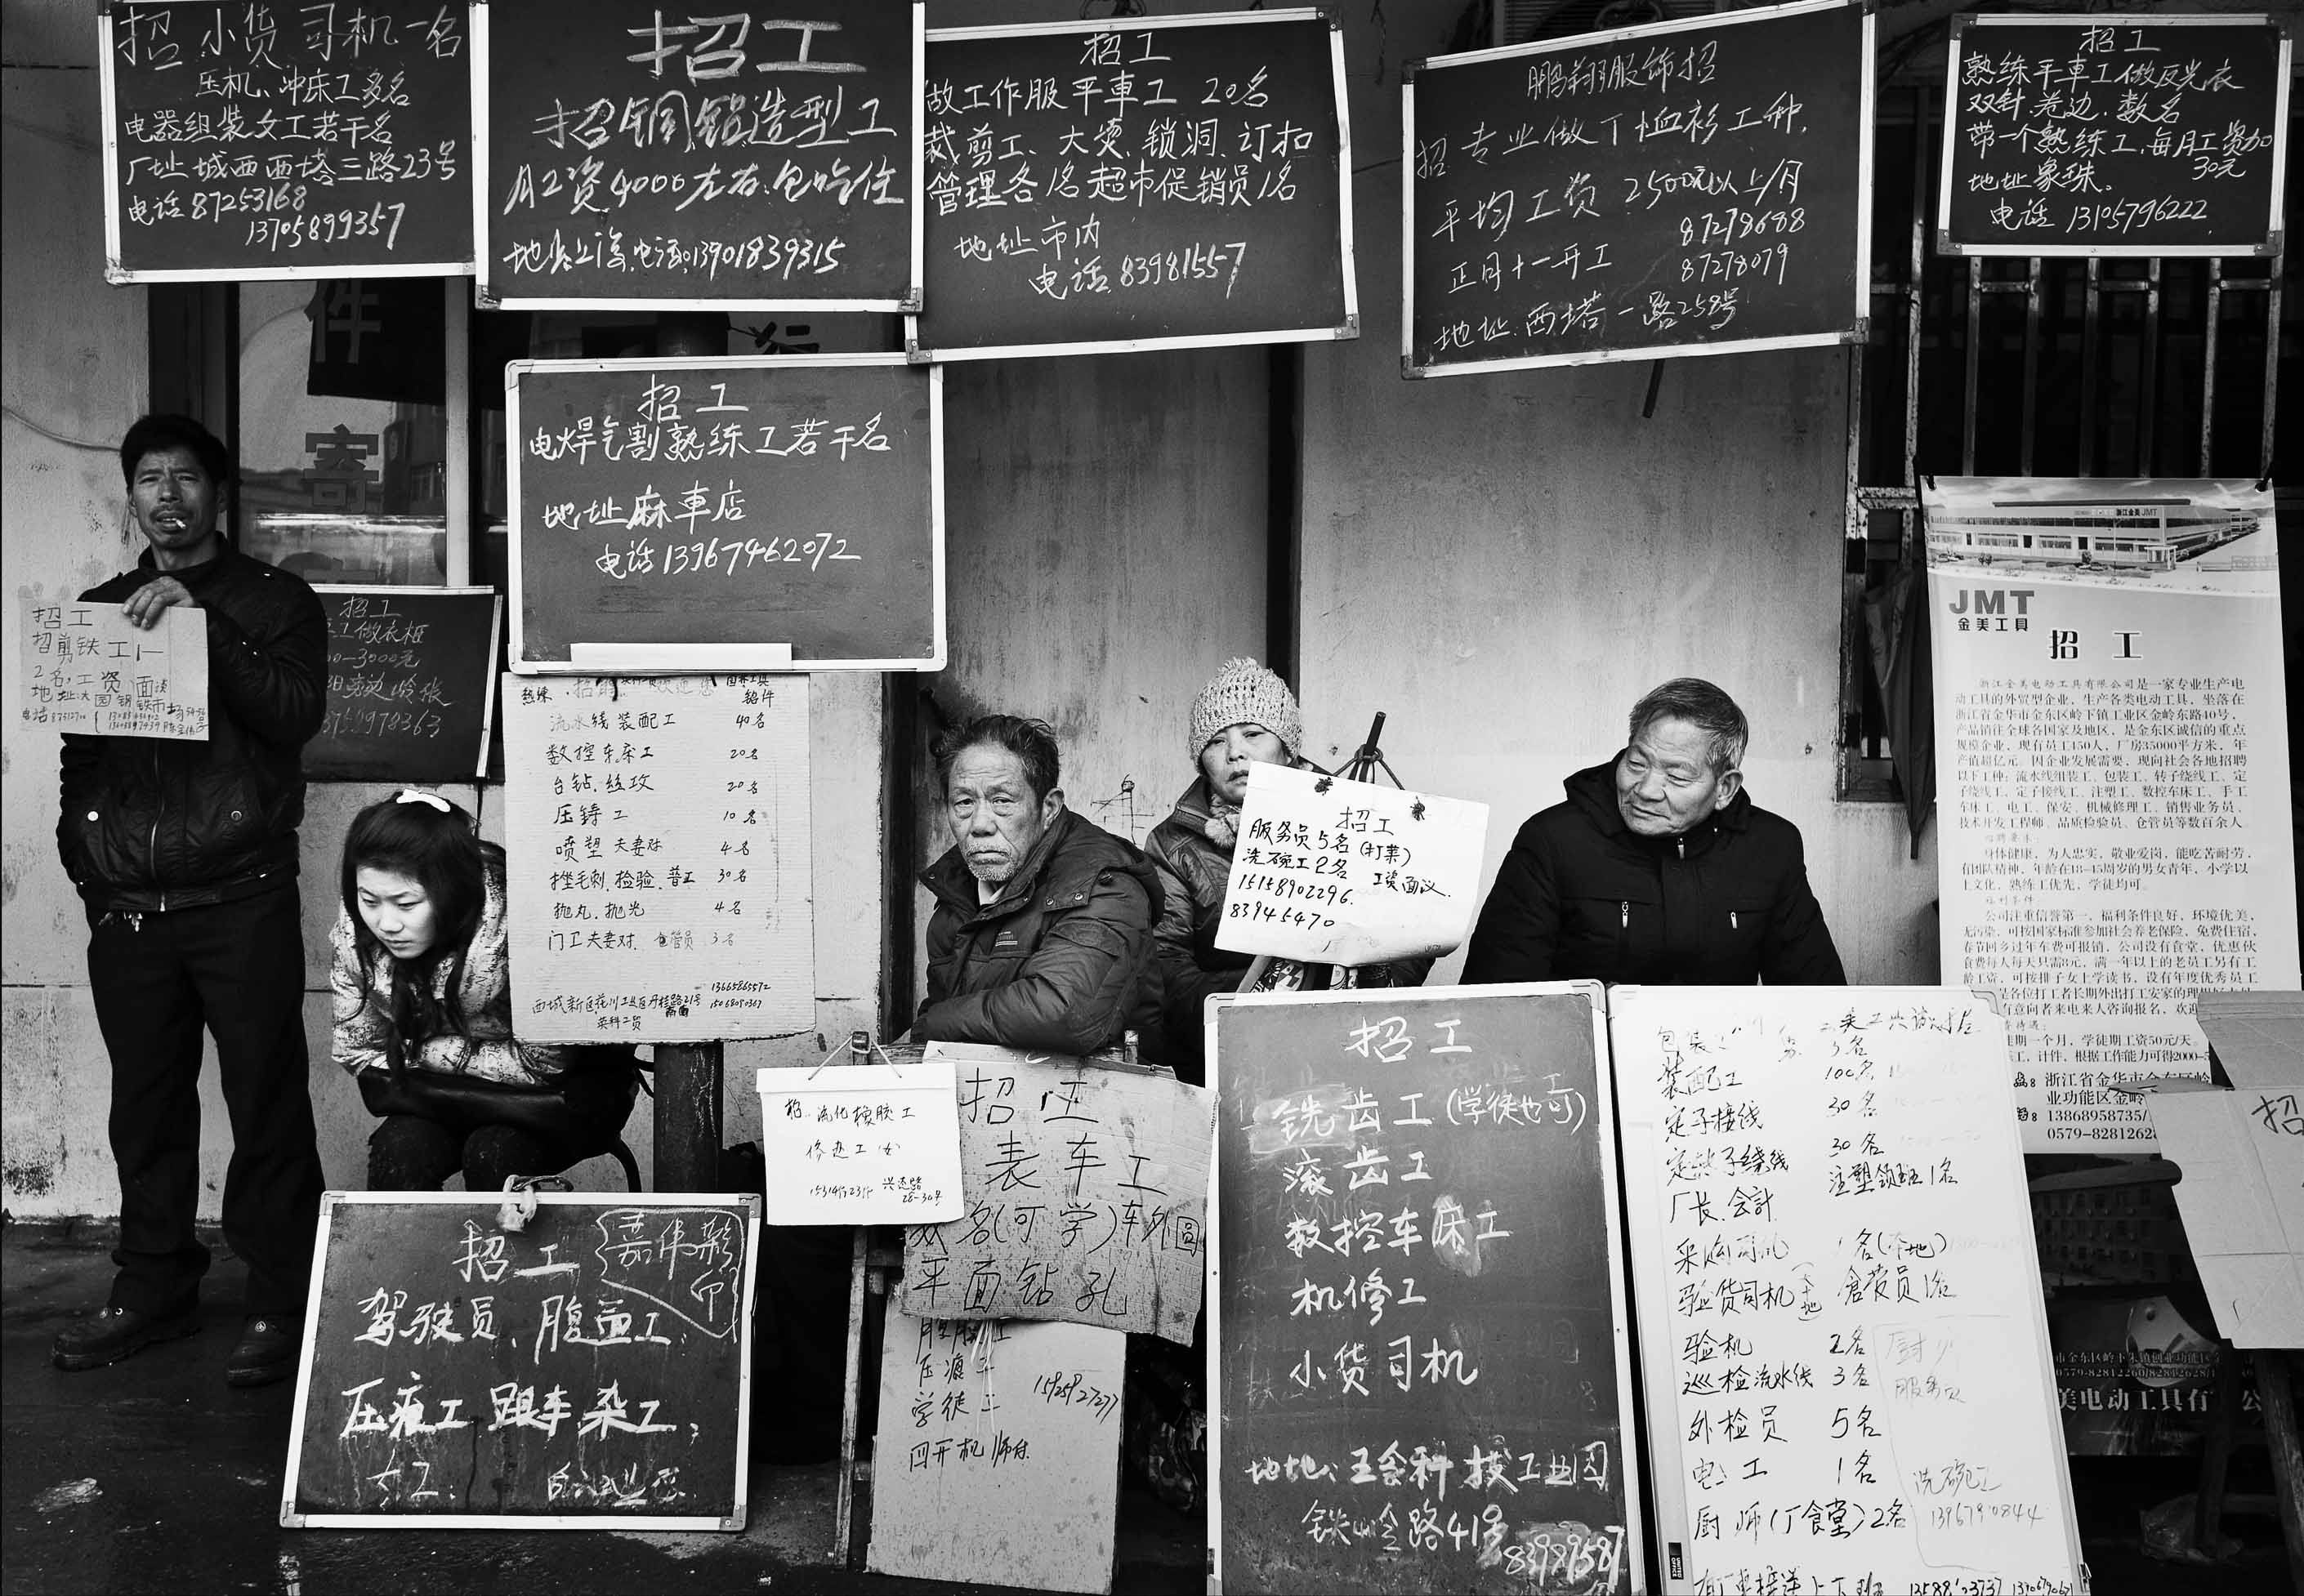 招 小货司机一名
压机、冲床工多名
电器组装女工若干名
厂址城西西塔三路23号
电话87253168
13705899357
招工
招铜铝造型工
月工资4000左右.包吃住
地址上海.电话:13901839315
招工
做工作服平車工 20名
裁剪工、大烫.锁洞.订扣
管理各1名超市促销员1名
地址市内
电话83981557
鹏翔服饰招
招专业做T恤衫工种.
平均工资2500元以上/月
正月十一开工
87278688
87278079
地址.西塔一路258号
招工
熟练平車工做反光衣
双针.卷边.数名
带一个熟练工,每月工资加
30元
地址象珠.
电话 13105796222
招工
电焊气割熟练工若干名
地址麻車店
电话13967462072
件
寄
招工
招剪铁工
2名,工资面谈
招工
工做衣柜
00-3000元
流水线装配工 40名
数控车床工 20名
台钻.丝攻 20名
压铸工 10名
喷塑 夫妻对 4名
挫毛刺.检验.普工 30名
抛丸.抛光 4名
门工夫妻对. 仓管员 3名
13665865572
招工
服务员5名(打票)
洗碗工2名 工资面议.
15158902296.
83945470
JMT
金美工具
招 工
浙江金美电动工具有限公司是一家专业生产电
动工具的外贸型企业,生产各类电动工具,坐落在
浙江省金华市金东区岭下镇工业区金岭东路40号,
产品销往全球各国家及地区,是金东区诚信的重点
规模企业,现有员工150人,厂房35000平方米,年
产值超亿元。因企业发展需要,现向社会各地招聘
以下工种:流水线组装工、包装工、转子绕线工、定
子绕线工、定子接线工、注塑工、数控车床工、手工
车床工、电工、保安、机械修理工、销售业务员、
技术开发工程师、品质检验员、仓管员等数百余人
身体健康,为人忠实,敬业爱岗,能吃苦耐劳,
有团队精神,年龄在18-45周岁的男女青年,小学以
上文化,熟练工优先,学徒均可。
福利条件
公司注重信誉第一,福利条件良好,环境优美,
无污染,可按国家标准参加社会养老保险,免费住宿,
春节回乡过年车费可报销,公司设有食堂,优惠伙
食费每人每天只需8元,满一年以上的老员工另有工
龄工资,可按排子女上学读书,设有年度优秀员工
徒期一个月,学徒期工资50元/天
工、计件,根据工作能力可得2000-5
浙江省金华市金东区岭
业功能区金岭
13868958735/
0579-8281262
招. 硫化橡胶工
修边工 女
兴达路
28-30号
招工
表车工
数名(可学)车外圆
平面钻孔
压痕工
学徒工
15925927277
四开机师付.
招工
驾驶员、腹面工.
压痕工 跟车.杂工;
女工:
招工
铣齿工(学徒也可)
滚齿工
数控车床工
机修工
小货司机
地址:王舍科技工业园
铁岭路41号
83989587
装配工 100名
定子接线 30名
定子绕线 30名
厂长.会計 注塑领班1名
采购司机 1名(本地)
验货司机(本地) 倉管员1名
验机 2名
巡检流水线 3名
外检员 5名
电工 1名
厨师(厂食堂)2名
服务员
洗碗工
13967910844
招
美电动工具有 公